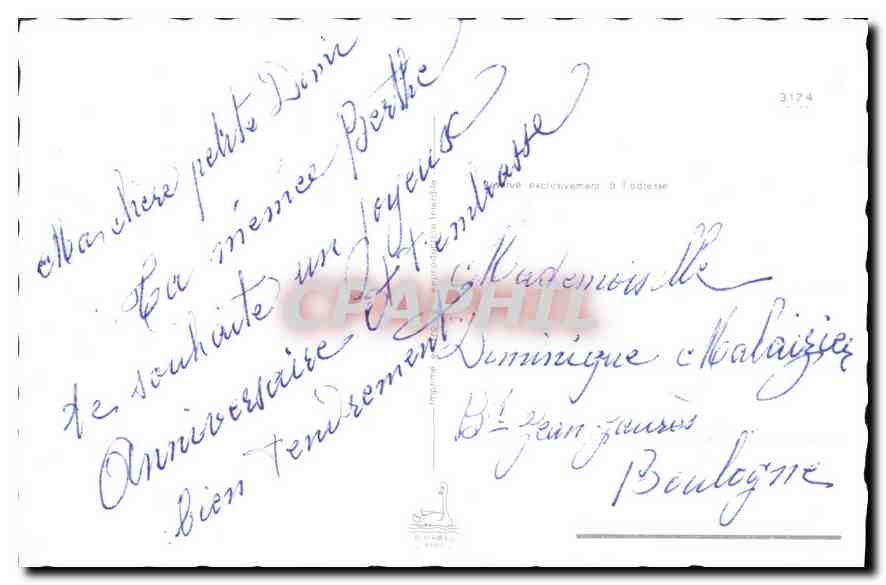 Ma chère petite Domi
Ta mémée Berthe
te souhaite un joyeux
Anniversaire et t'embrasse
bien tendrement
3174
exclusivement à l'adresse
Mademoiselle
Dominique Malaizier
Bd Jean-Jaurès
Boulogne
Imprimé
reproduction interdite
CPAPHIL